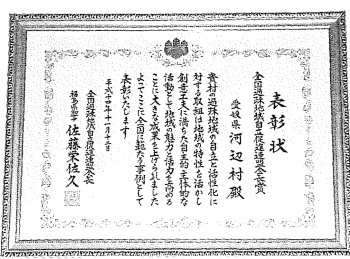 表彰状
全国過疎地域自立促進連盟会長賞
愛媛県 河辺村殿
貴村の過疎地域の自立と活性化に
対する取組は地域の特性を活かし
創意工夫に満ちた自主的主体的な
活動として地域の魅力と活力を高める
ことに大きな成果を上げられました
よってここに全国に範たる事例として
表彰いたします
平成十四年十一月十二日
全国過疎地域自立促進連盟会長
福島県知事 佐藤栄佐久